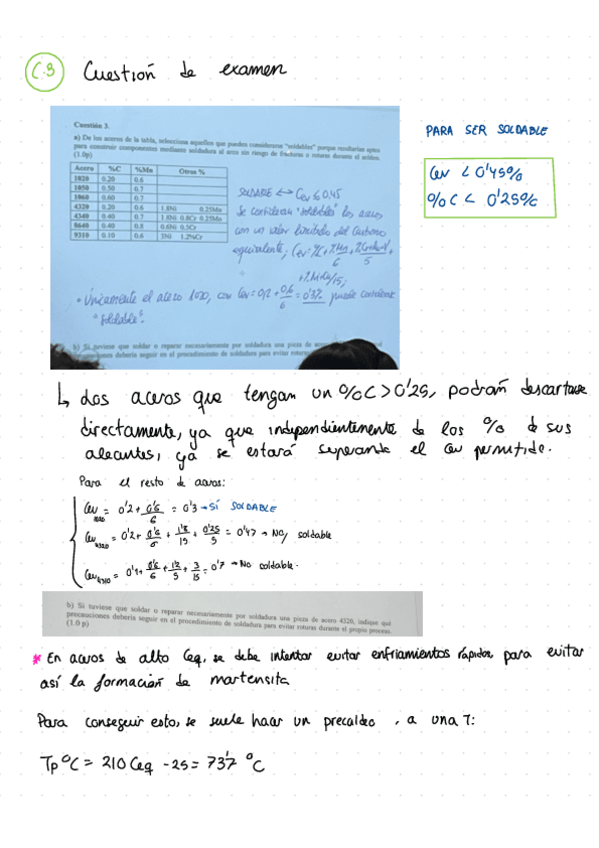 C.3 Cuestión de examen
Cuestión 3.
a) De los aceros de la tabla, selecciona aquellos que pueden considerarse "soldables" porque resultarían aptos
para construir componentes mediante soldadura al arco sin riesgo de fracturas o roturas durante el
(1.0p)
Acero %C %Mn Otros %
1020 0.20 0.6
1050 0.50 0.7
1060 0.60 0.7
4320 0.20 0.6 1.8Ni 0.25Mo
4340 0.40 0.7 1.8Ni 0.8Cr 0.25Mo
8640 0.40 0.8 0.6Ni 0.5Cr
9310 0.10 0.6 3Ni 1.2%Cr
SOLDABLE ↔ Cev ≤ 0.45
Se consideran "soldables" los aceros
con un valor limitado del Carbono
equivalente; Cev = %C + %Mn/6 + %Cr+Mo+V/5 +
+ %Ni+Cu/15;
• Únicamente el acero 1020, con Cev = 0,2 + 0,6/6 = 0'3% puede considerarse
"soldable".
b) Si tuviese que soldar o reparar necesariamente por soldadura una pieza de acero
precauciones debería seguir en el procedimiento de soldadura para evitar roturas
PARA SER SOLDABLE
Cev < 0'45%
%C < 0'25%
↳ Los aceros que tengan un %C > 0'25, podrán descartarse
directamente, ya que independientemente de los % de sus
aleantes, ya se estará superando el Cev permitido.
Para el resto de aceros:
Cev 1020 = 0'2 + 0'6/6 = 0'3 → SÍ SOLDABLE
Cev 4320 = 0'2 + 0'6/6 + 1'8/15 + 0'25/5 = 0'47 → No, soldable
Cev = 0'1 + 0'6/6 + 1'2/5 + 3/15 = 0'7 → No soldable.
b) Si tuviese que soldar o reparar necesariamente por soldadura una pieza de acero 4320, indique qué
precauciones debería seguir en el procedimiento de soldadura para evitar roturas durante el propio proceso.
(1.0 p)
* En aceros de alto Ceq, se debe intentar evitar enfriamientos rápidos, para evitar
así la formación de martensita
Para conseguir esto, se suele hacer un precaldeo, a una T:
Tp °C = 210 Ceq - 25 = 73'7 °C